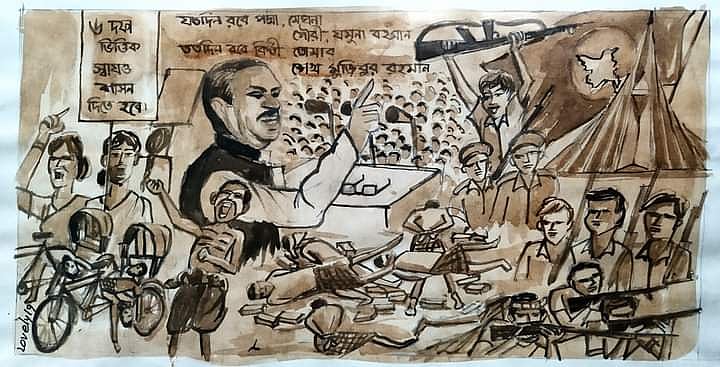 ৬ দফা
ভিত্তিক
স্বায়ত্ত
শাসন
দিতে হবে।
যতদিন রবে পদ্মা, মেঘনা
গৌরী, যমুনা বহমান
ততদিন রবে কির্তী তোমার
শেখ মুজিবুর রহমান
Lovely19